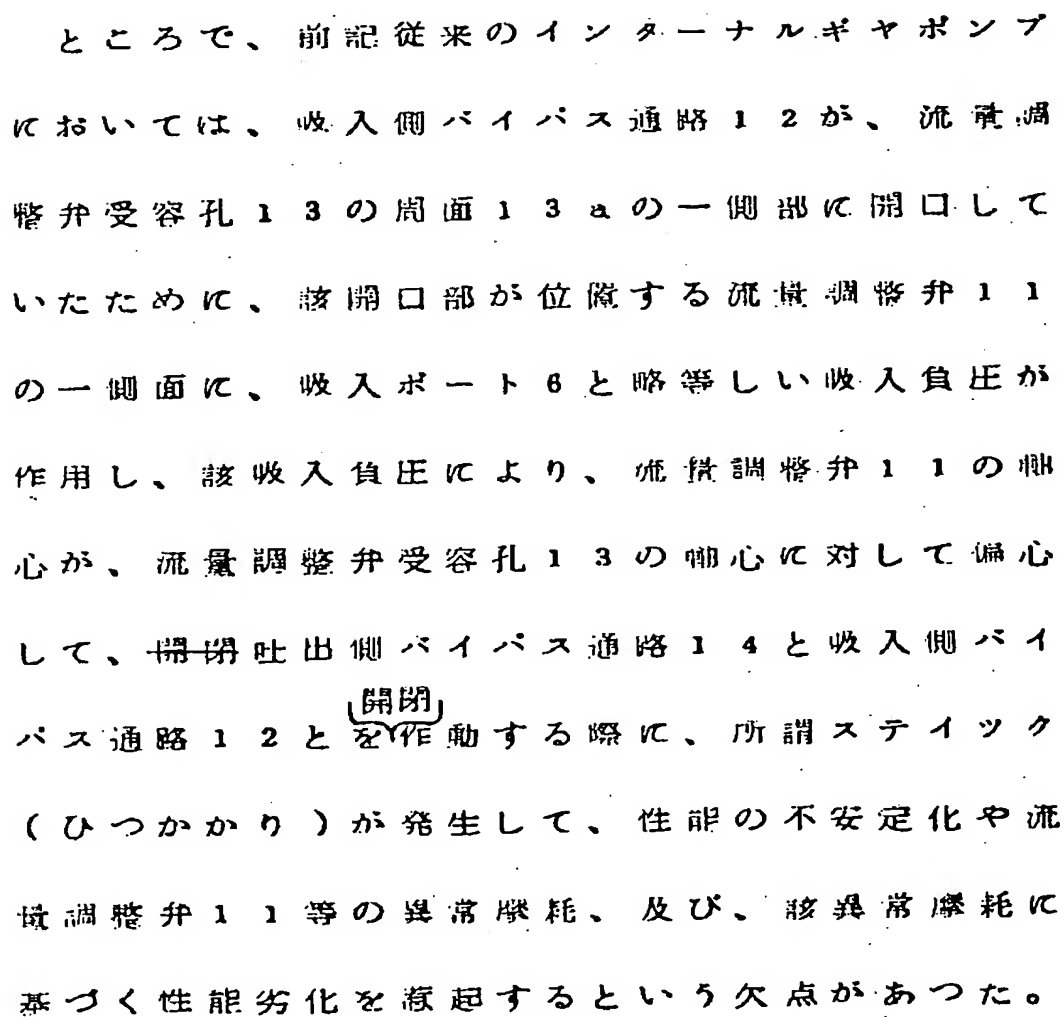 ところで、前記従来のインターナルギヤポンプ
においては、吸入側バイパス通路12が、流量調
整弁受容孔13の周面13aの一側部に開口して
いたために、該開口部が位置する流量調整弁11
の一側面に、吸入ポート6と略等しい吸入負圧が
作用し、該吸入負圧により、流量調整弁11の軸
心が、流量調整弁受容孔13の軸心に対して偏心
して、開閉吐出側バイパス通路14と吸入側バイ
パス通路12とを開閉作動する際に、所謂ステイツク
(ひつかかり)が発生して、性能の不安定化や流
量調整弁11等の異常摩耗、及び、該異常摩耗に
基づく性能劣化を惹起するという欠点があつた。